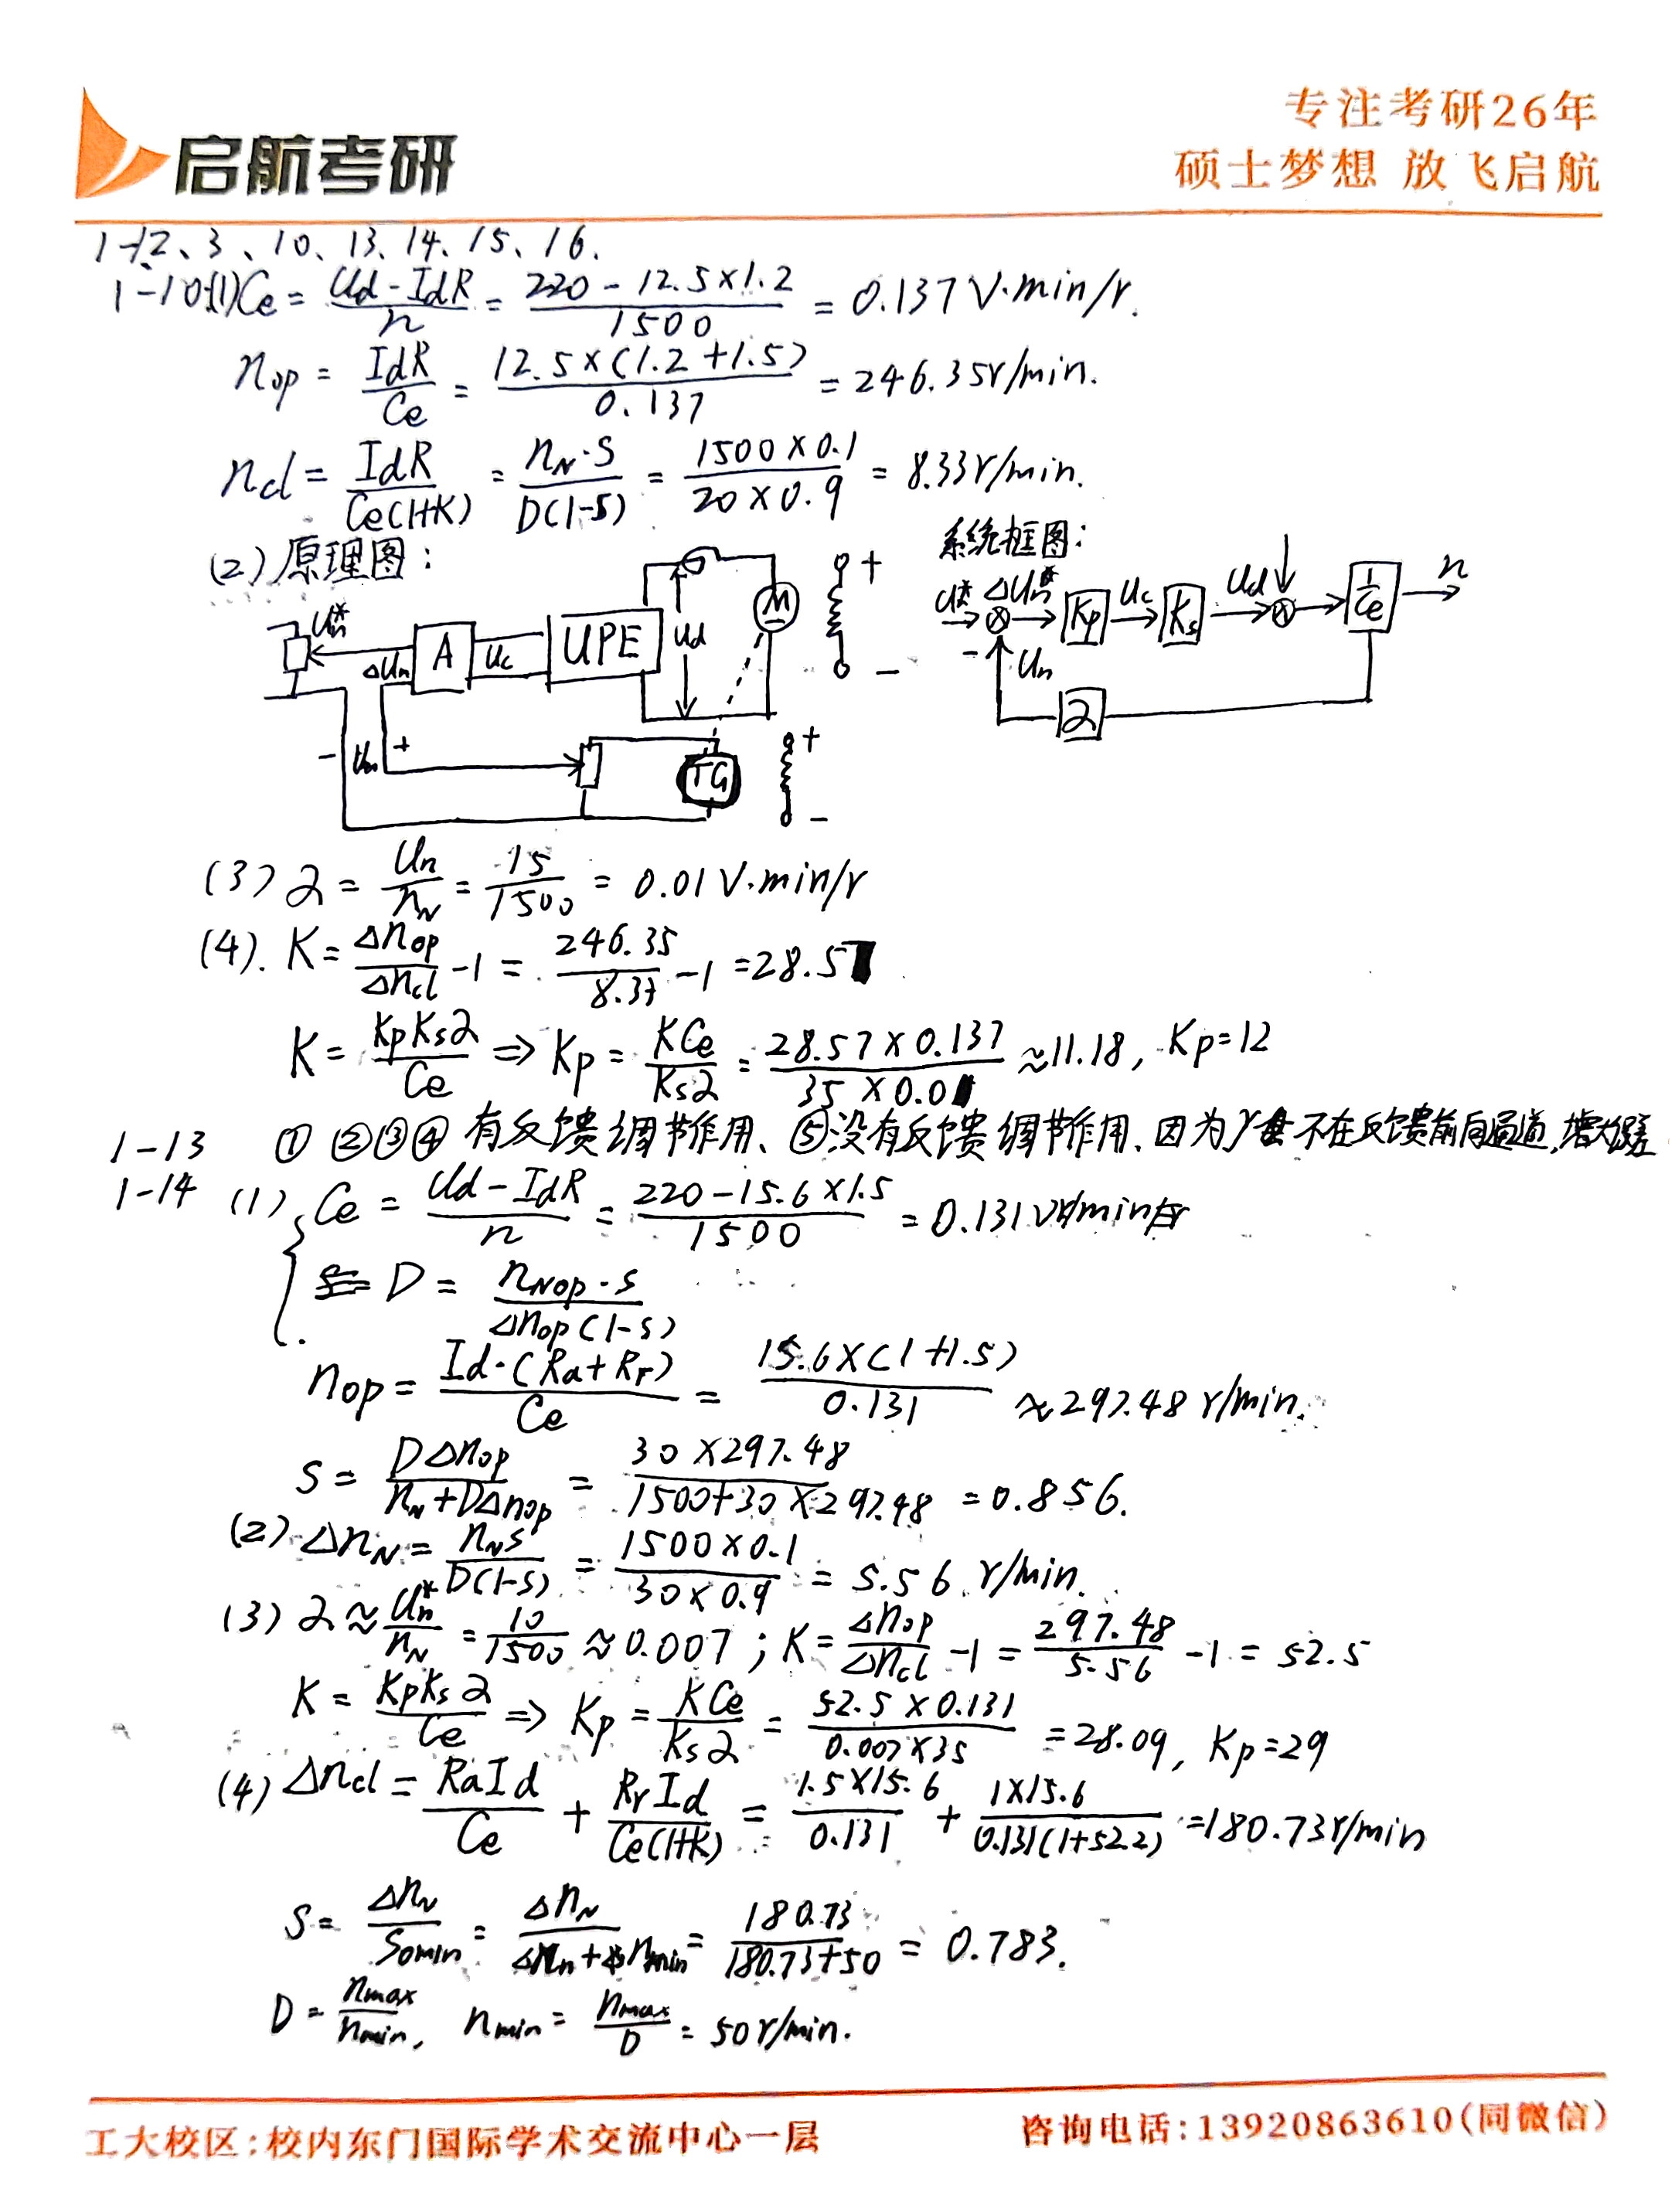 启航考研
专注考研26年
硕士梦想 放飞启航
1-12、3、10、13、14、15、16.
1-10 (1) Ce = (Ud-IdR)/n = (220-12.5×1.2)/1500 = 0.137 V·min/r.
nop = IdR/Ce = 12.5×(1.2+1.5)/0.137 = 246.35r/min.
ncl = IdR/Ce(1+K) = nN·S/D(1-S) = 1500×0.1/20×0.9 = 8.33r/min.
(2)原理图: 系统框图:
Un* ΔUn A Uc UPE Ud M + -
- Un + TG + -
Un* ΔUn* Kp Uc Ks Ud 1/Ce n
- Un α
(3) α = Un/nN = 15/1500 = 0.01 V·min/r
(4). K = Δnop/Δncl -1 = 246.35/8.33 -1 = 28.57
K = KpKsα/Ce ⇒ Kp = KCe/Ksα = 28.57×0.137/35×0.01 ≈ 11.18, Kp=12
1-13 ① ②③④ 有反馈调节作用、⑤没有反馈调节作用.因为 不在反馈前向通道,增大误差
1-14 (1) Ce = (Ud-IdR)/n = (220-15.6×1.5)/1500 = 0.131 V·min/r
D = nNop·s/Δnop(1-s)
nop = Id·(Ra+Rr)/Ce = 15.6×(1+1.5)/0.131 ≈ 297.48 r/min.
S = DΔnop/(nN+DΔnop) = 30×297.48/(1500+30×297.48) = 0.856.
(2) ΔnN = nNs/D(1-s) = 1500×0.1/30×0.9 = 5.56 r/min.
(3) α ≈ Un*/nN = 10/1500 ≈ 0.007 ; K = Δnop/Δncl -1 = 297.48/5.56 -1 = 52.5
K = KpKsα/Ce ⇒ Kp = KCe/Ksα = 52.5×0.131/0.007×35 = 28.09, Kp=29
(4) Δncl = RaId/Ce + RrId/Ce(1+K) = 1.5×15.6/0.131 + 1×15.6/0.131(1+52.2) = 180.73r/min
S = ΔnN/Somin = ΔnN/(Δnn+nmin) = 180.73/(180.73+50) = 0.783.
D = nmax/nmin, nmin = nmax/D = 50r/min.
工大校区:校内东门国际学术交流中心一层
咨询电话:13920863610(同微信)